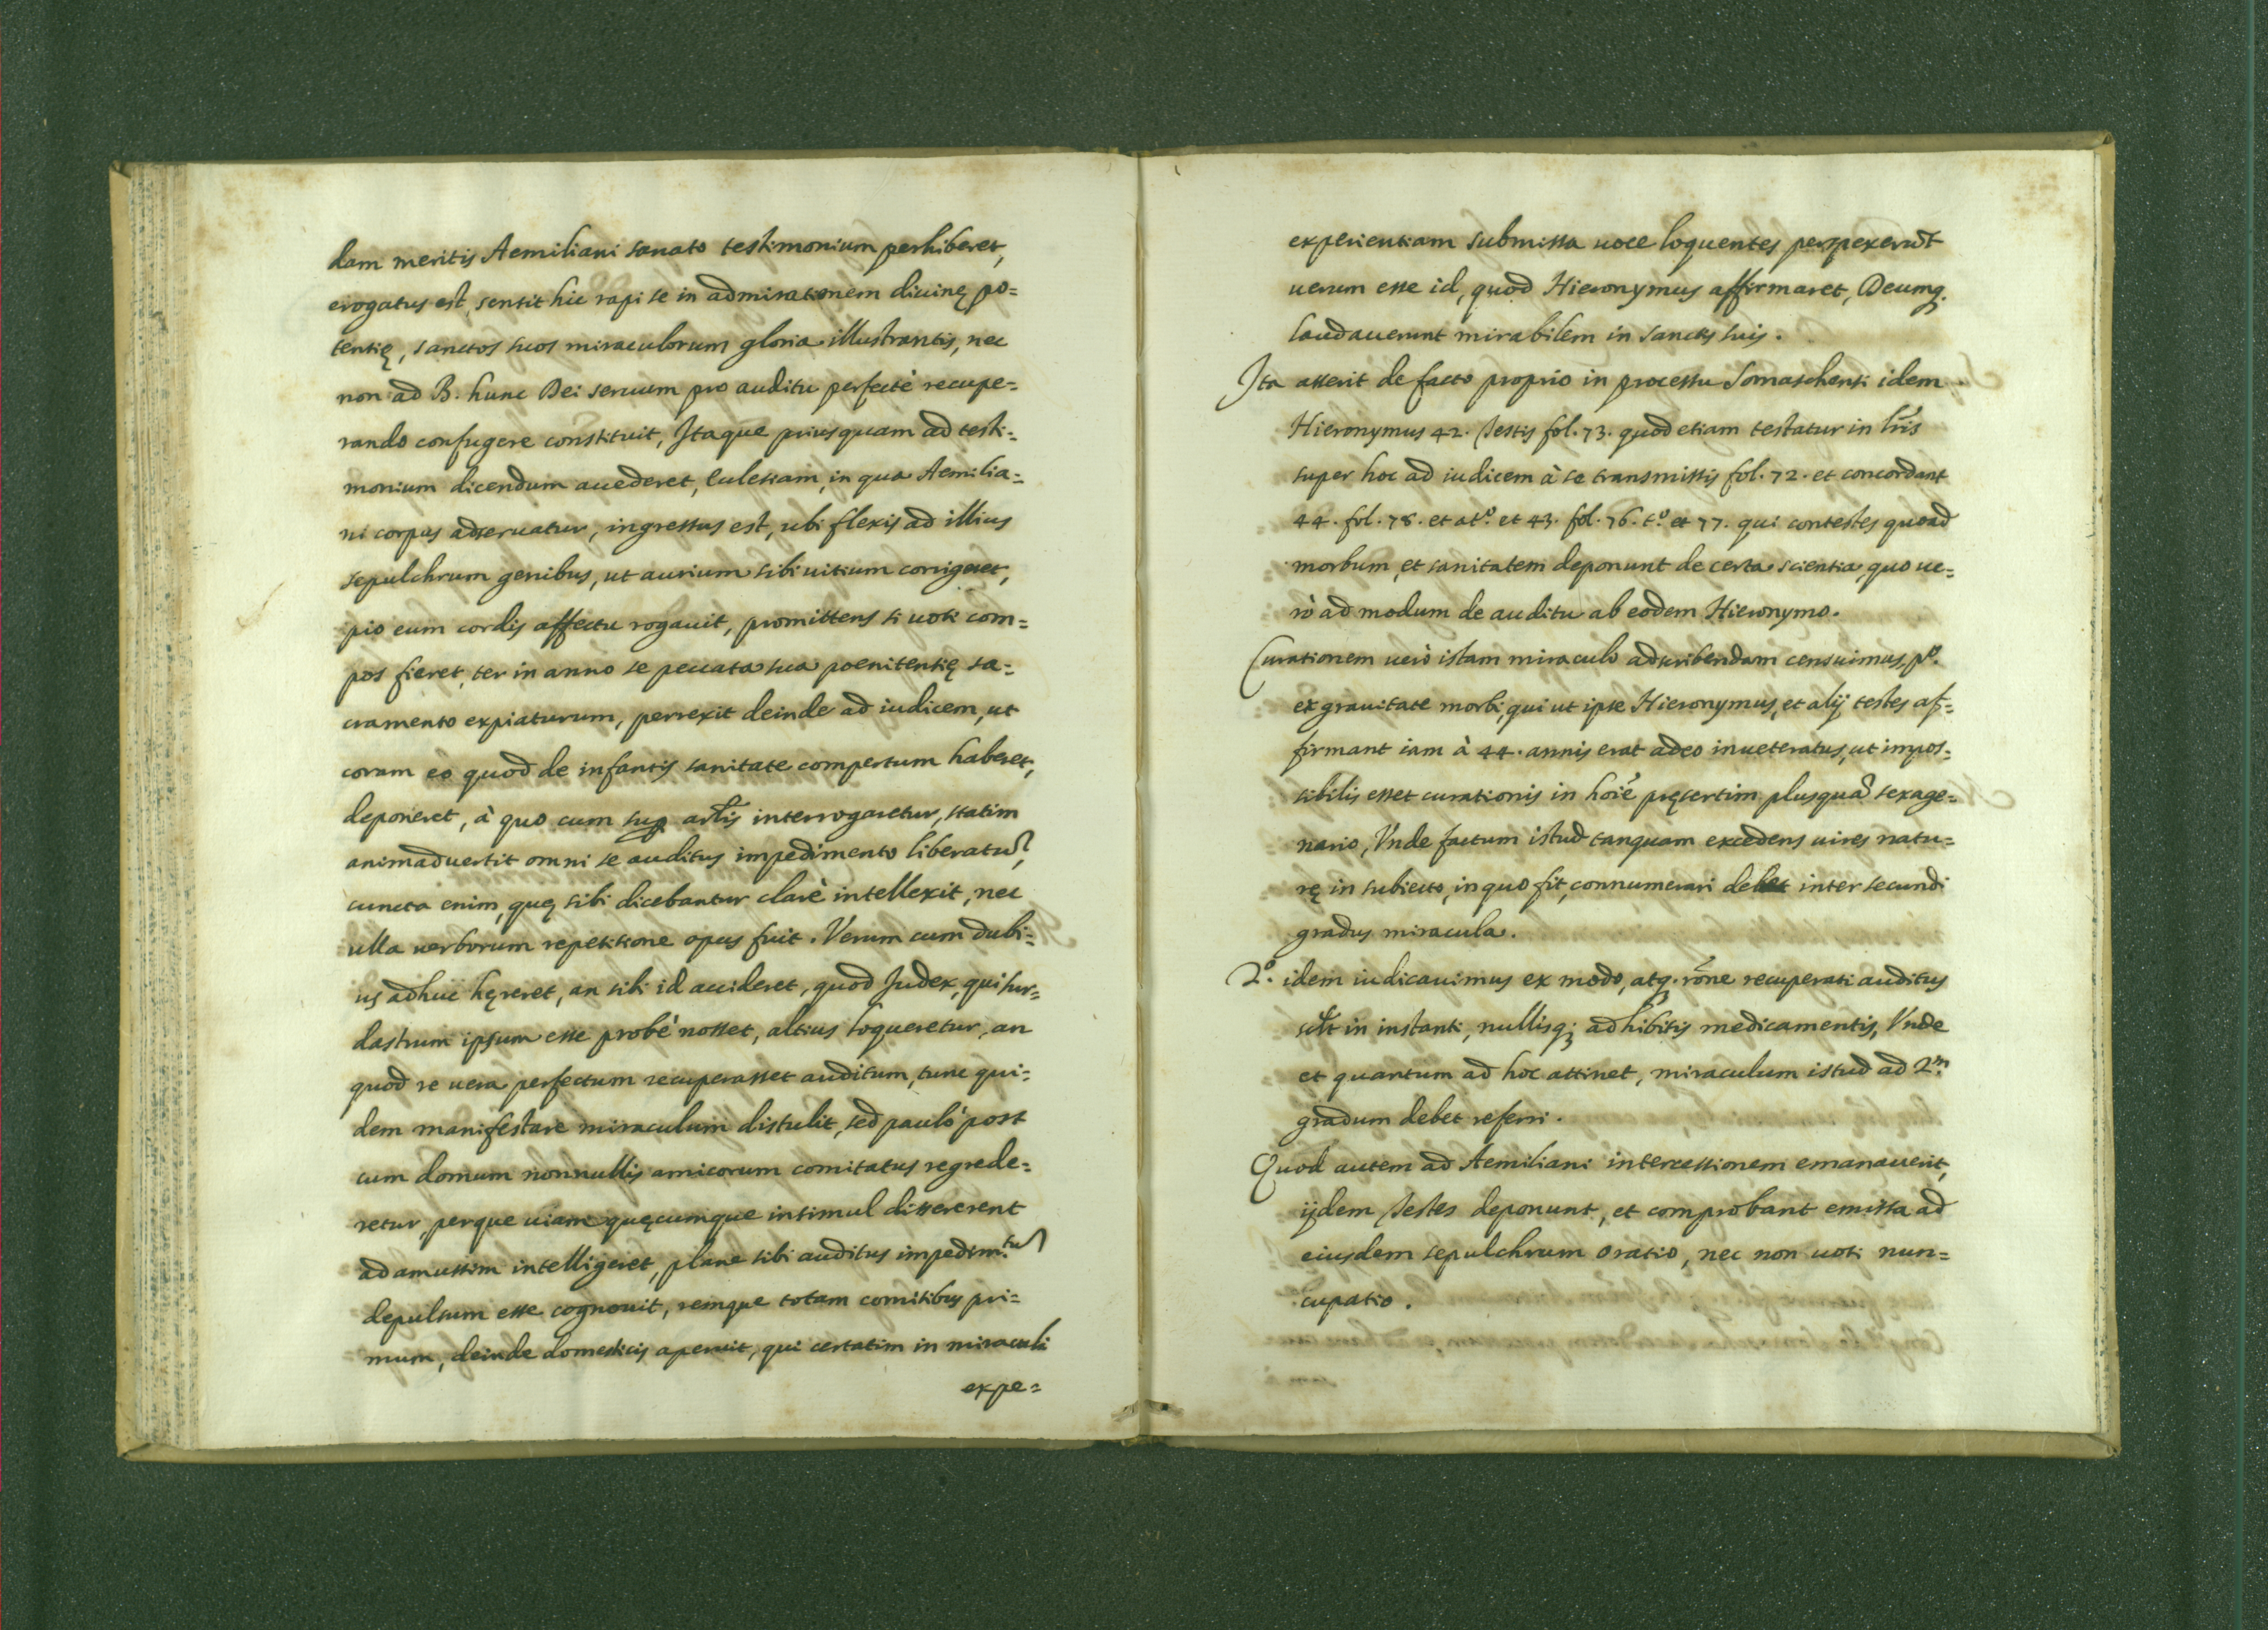 dam meritis Aemiliani sanato testimonium perhiberet,
erogatus est, sensit hic rapi se in admirationem diuinę po=
tentię, sanctos suos miraculorum gloria illustrantis, nec
non ad B. hunc Dei seruum pro auditu perfectè recupe=
rando confugere constituit, Itaque priusquam ad testi=
monium dicendum accederet, Eclesiam, in qua Aemilia=
ni corpus adseruatur, ingressus est, ubi flexis ad illius
sepulchrum genibus, ut aurium sibi uitium corrigeret,
pio eum cordis affectu rogauit, promittens si uoti com=
pos fieret, ter in anno se peccata sua poenitentię sa=
cramento expiaturum, perrexit deinde ad iudicem, ut
coram eo quod de infantis sanitate compertum haberet,
deponeret, à quo cum sup artis interrogaretur, statim
animaduertit omni se auditus impedimento liberatũ,
cuncta enim, quę sibi dicebantur clarè intellexit, nec
ulla uerborum repetitione opus fuit. Verum cum dubi=
us adhuc hęreret, an sibi id accideret, quod Judex, qui sur=
dastrum ipsum esse probè nosset, altius loqueretur, an
quod re uera perfectum recuperasset auditum, tunc qui=
dem manifestare miraculum distulit, sed paulò post
cum domum nonnullis amicorum comitatus regrede=
retur, perque uiam quęcumque insimul dissererent
adamussim intelligeret, plane sibi auditus impedim.tũ
depulsum esse cognouit, remque totam comitibus pri=
mum, deinde domesticis aperuit, qui certatim in miraculi
expe=
experientiam submissa uoce loquentes perspexerũt
uerum esse id, quod Hieronymus affirmaret, Deumq.
laudauerunt mirabilem in sanctis suis.
Ita asserit de facto proprio in processu Somaschensi idem
Hieronymus 42. testis fol. 73. quod etiam testatur in lr̃is
super hoc ad iudicem à se transmissis fol. 72. et concordant
44. fol. 78. et at.º et 43. fol. 76. t.º et 77. qui contestes quoad
morbum, et sanitatem deponunt de certa scientia, quo ue=
rò ad modum de auditu ab eodem Hieronymo.
Curationem uerò istam miraculo adscribendam censuimus, pº.
ex grauitate morbi, qui ut ipse Hieronymus, et alij testes af=
firmant iam à 44. annis erat adeo inueteratus, ut impos=
sibilis esset curationis in hoĩe pręsertim plusquã sexage=
nario, Vnde factum istud tanquam excedens uires natu=
rę in subiecto, in quo fit, connumerari debet inter secundi
gradus miracula.
2º. idem iudicauimus ex modo, atq. rõne recuperati auditus
sclt̃ in instanti, nullisq; adhibitis medicamentis, Vnde
et quantum ad hoc attinet, miraculum istud ad 2.m
gradum debet referri.
Quod autem ad Aemiliani intercessionem emanauerit,
ijdem testes deponunt, et comprobant emissa ad
eiusdem sepulchrum oratio, nec non uoti nun=
cupatio.